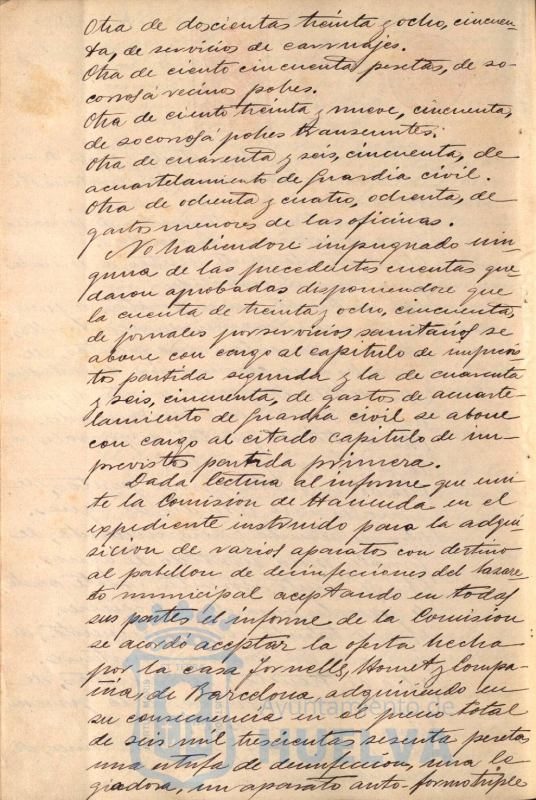 Otra de doscientas treinta y ocho, cincuen-
ta, de servicios de carruajes.
Otra de ciento cincuenta pesetas, de so-
corros á vecinos pobres.
Otra de ciento treinta y nueve, cincuenta,
de socorros á pobres transeuntes.
Otra de cuarenta y seis, cincuenta, de
acuartelamiento de Guardia civil.
Otra de ochenta y cuatro, ochenta, de
gastos menores de las oficinas.
No habiendose impugnado nin-
guna de las precedentes cuentas que-
daron aprobadas disponiendose que
la cuenta de treinta y ocho, cincuenta,
de jornales por servicios sanitarios se
abone con cargo al capitulo de imprevis-
tos partida segunda y la de cuarenta
y seis, cincuenta, de gastos de acuarte-
lamiento de Guardia civil se abone
con cargo al citado capitulo de im-
previstos partida primera.
Dada lectura al informe que emi-
te la Comision de Hacienda en el
expediente instruido para la adqui-
sicion de varios aparatos con destino
al pabellon de desinfecciones del lazare-
to municipal aceptando en todas
sus partes el informe de la Comision
se acordó aceptar la oferta hecha
por la casa Jornells, Homet y Compa-
ñia, de Barcelona, adquiriendo en
su consecuencia en el precio total
de seis mil trescientas sesenta pesetas
una estufa de desinfeccion, una le-
giadora, un aparato auto-formo triple
Ayuntamiento de
HUELVA